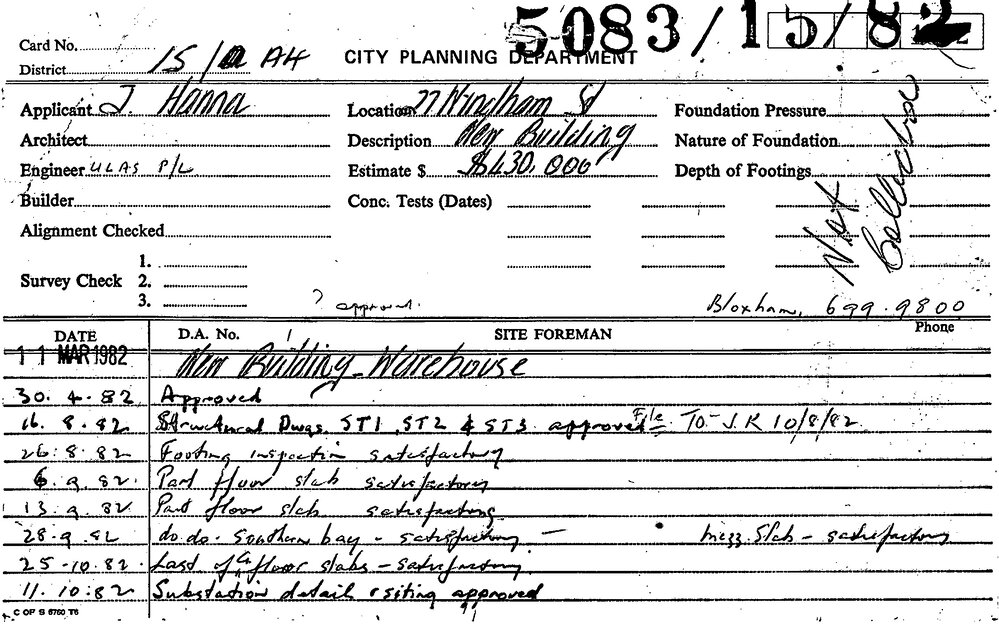 5083/15/82
Card No.
District 15/ A4 CITY PLANNING DEPARTMENT
Applicant J. Hanna Location 77 Wyndham St Foundation Pressure
Architect Description New Building Nature of Foundation
Engineer ULAS P/L Estimate $ $430,000 Depth of Footings
Builder Conc. Tests (Dates)
Alignment Checked
Survey Check 1.
2.
3.
? approval. Bloxham, 699.9800
DATE D.A. No. SITE FOREMAN Phone
11 MAR 1982 New Building - Warehouse
30.4.82 Approved
16.8.82 Structural Dwgs. ST1, ST2 & ST3 approved File To J.K 10/8/82
26.8.82 Footing inspection satisfactory
6.9.82. Part floor slab satisfactory
13.9.82 Part floor slab satisfactory
28.9.82 do do. Southern bay - satisfactory - mezz. Slab - satisfactory
25.10.82 Last of G floor slabs - satisfactory
11.10.82 Substation detail & siting approved
C OF S 6750 T6